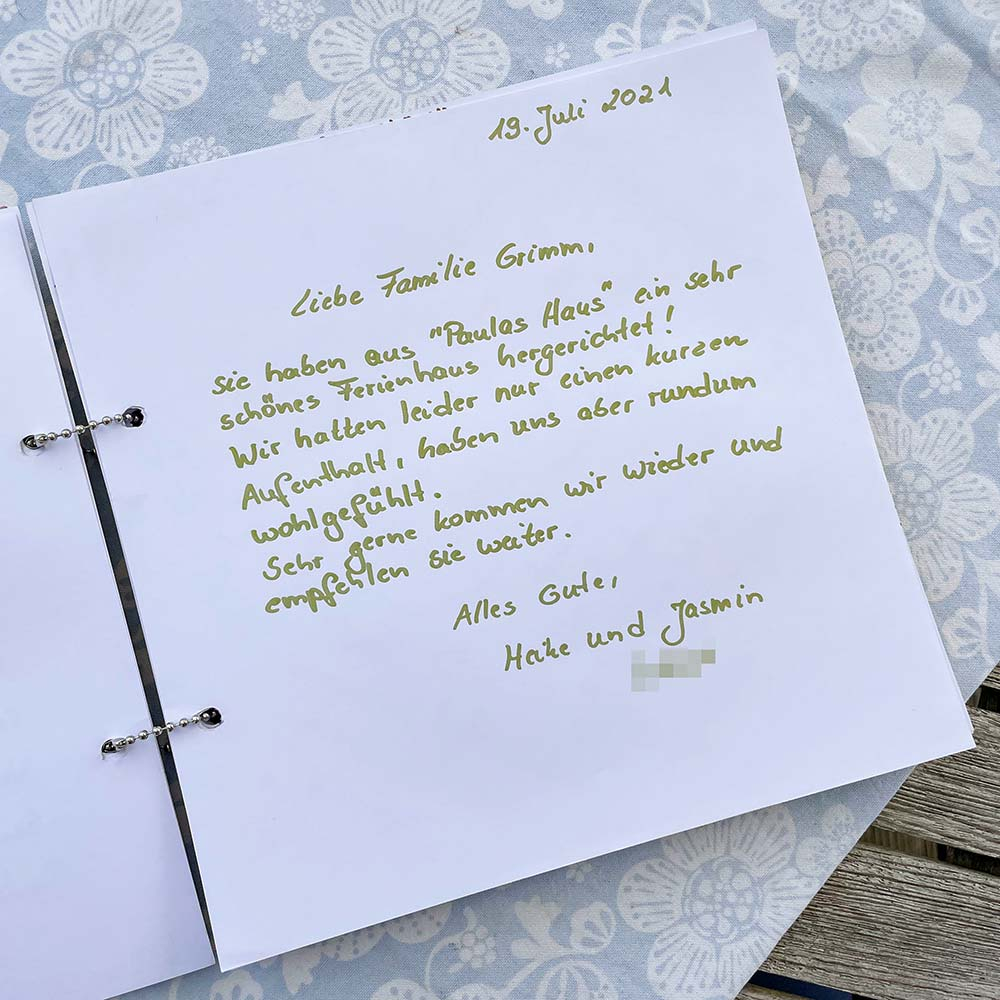 19. Juli 2021
Liebe Familie Grimm,
sie haben aus "Paulas Haus" ein sehr
schönes Ferienhaus hergerichtet!
Wir hatten leider nur einen kurzen
Aufenthalt, haben uns aber rundum
wohlgefühlt.
Sehr gerne kommen wir wieder und
empfehlen sie weiter.
Alles Gute,
Heike und Jasmin